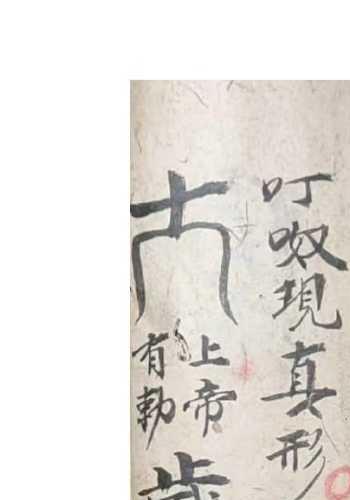 叮呶現真形
上帝
有勅